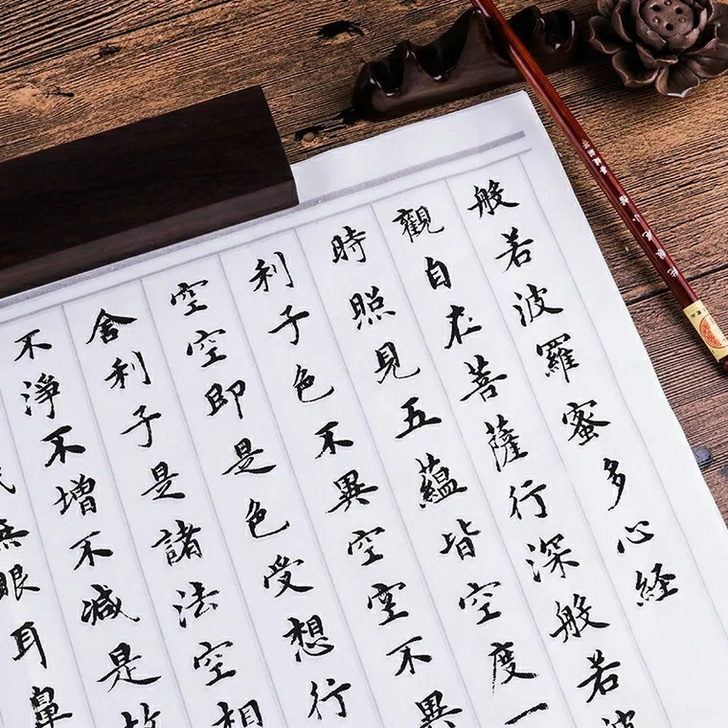 般若波羅蜜多心経
觀自在菩薩行深般若波
時照見五蘊皆空度一
利子色不異空空不異
空空即是色受想行
舍利子是諸法空相
不淨不增不減是故
無眼耳鼻